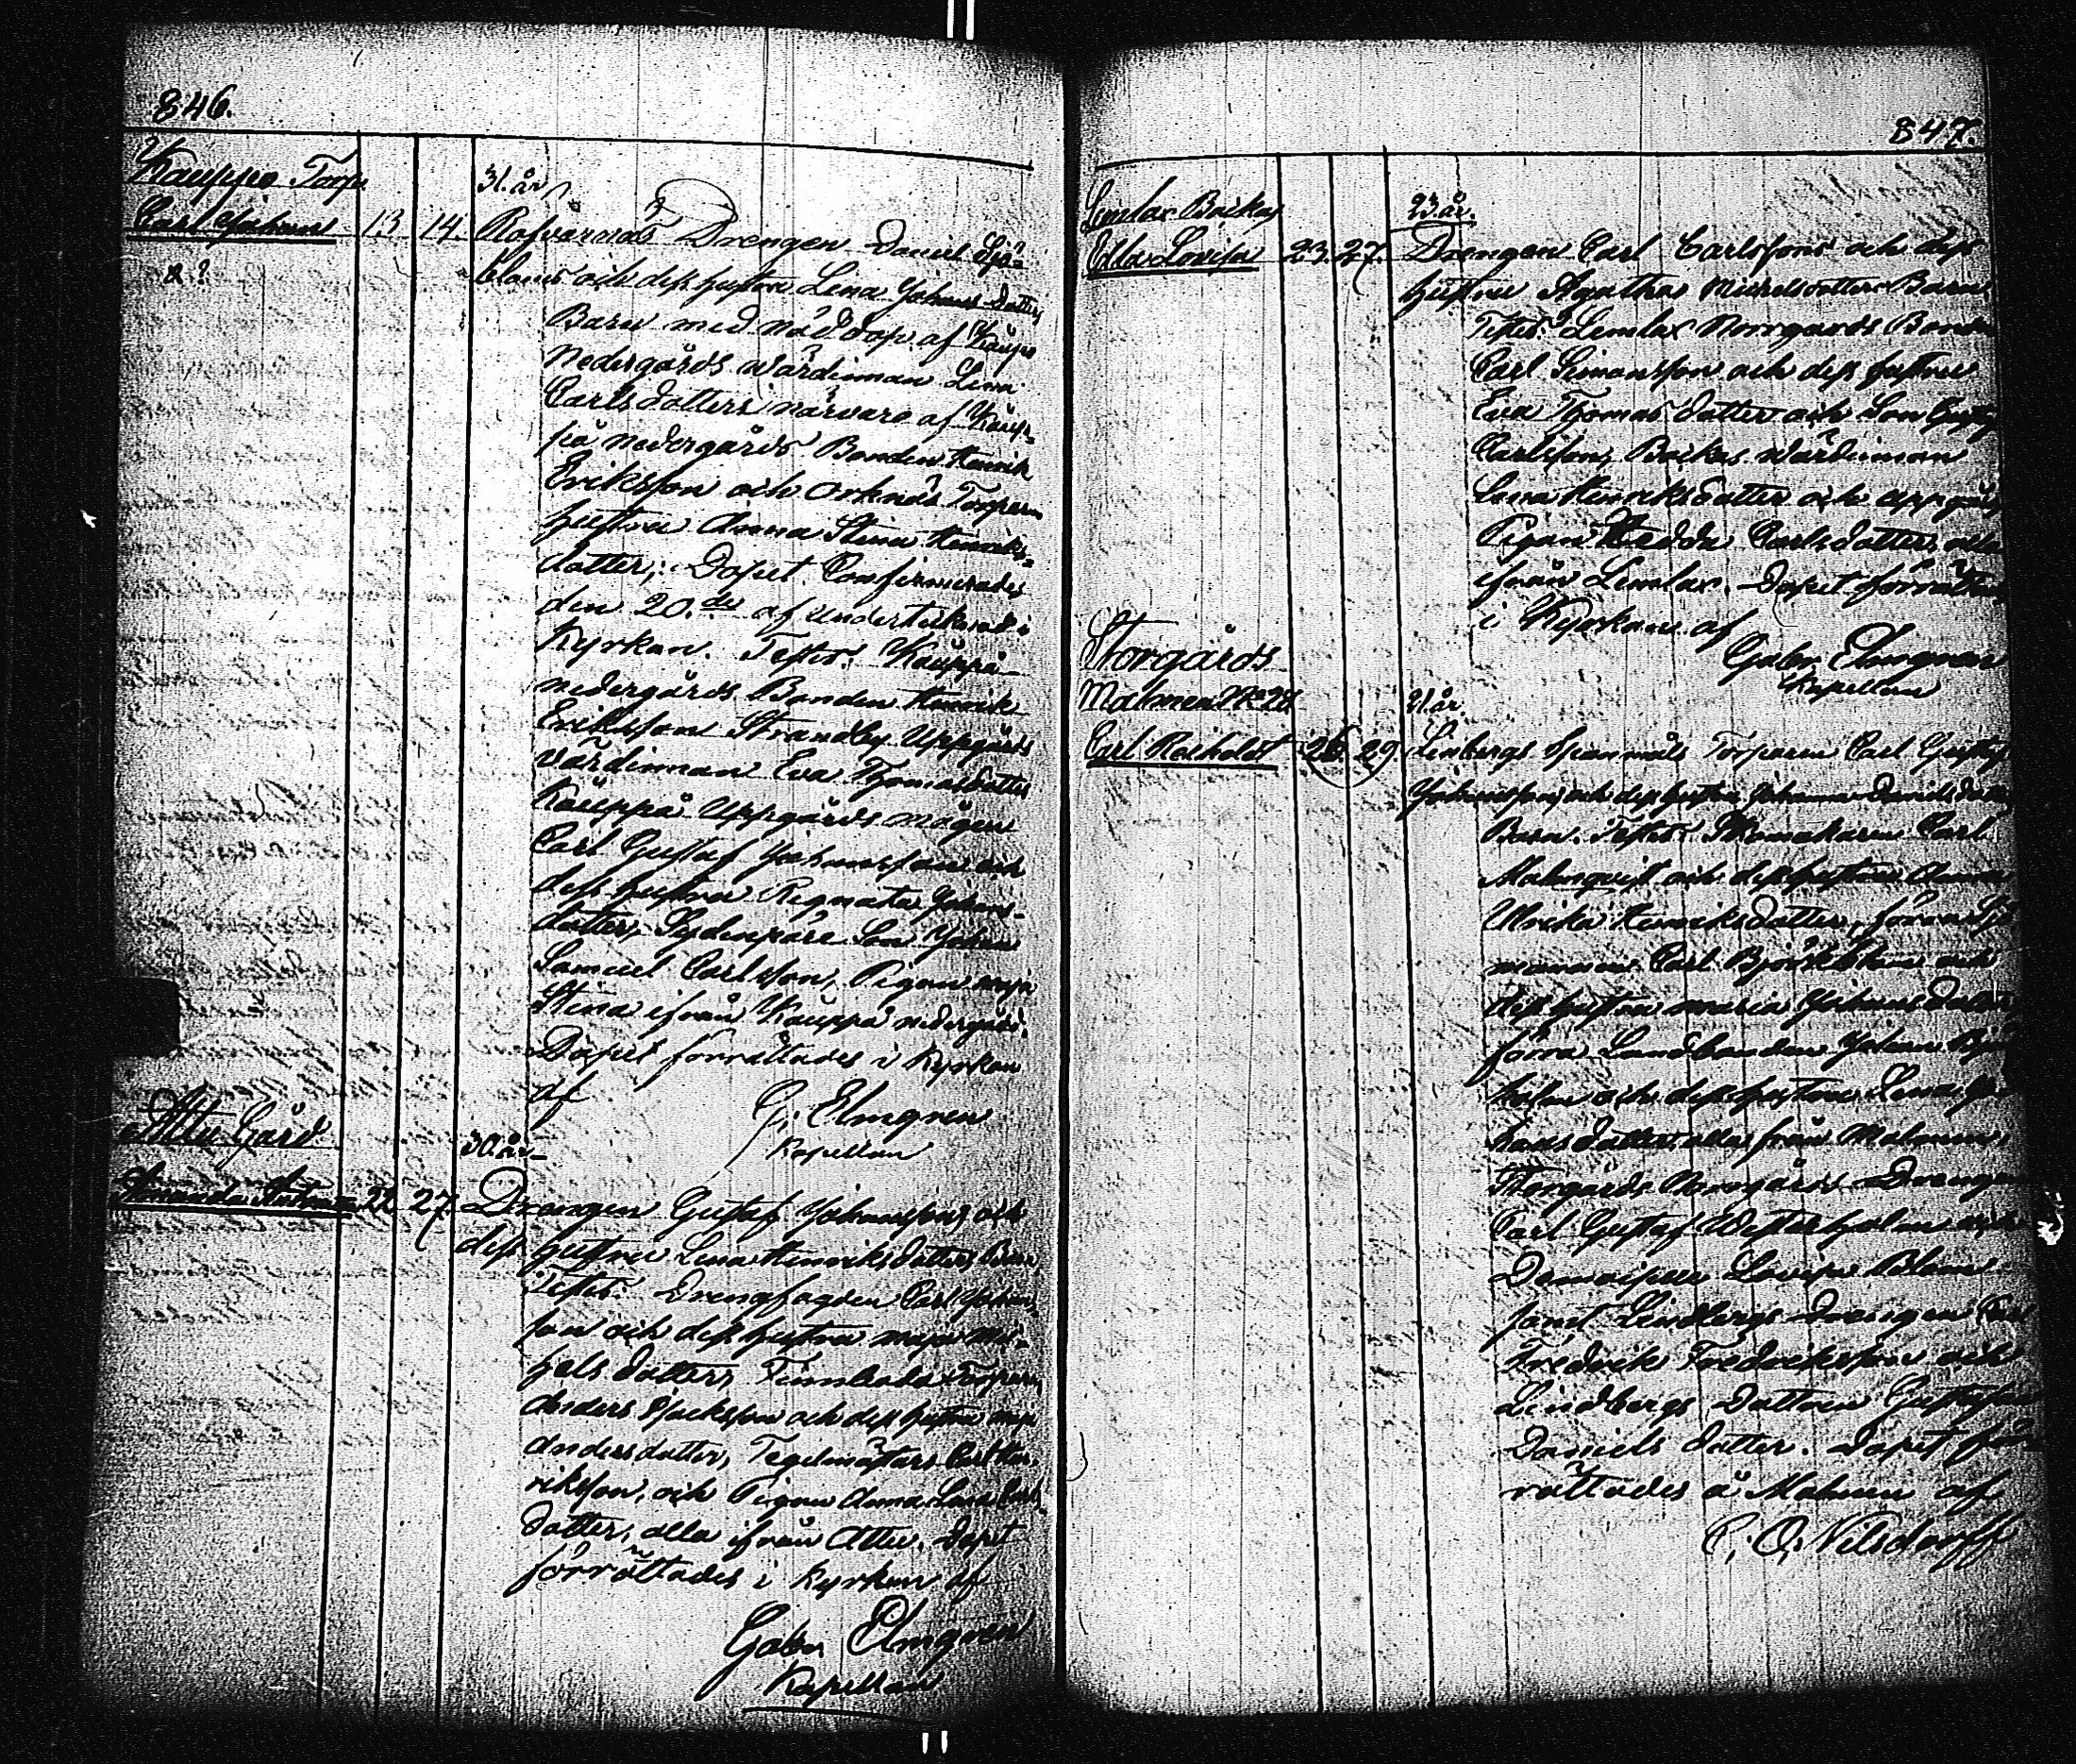 846.
Kauppo Torp
31. år
Carl Johann 13 14. Rofvarnäs Drengen Daniel Sjö-
bloms och dess hustru Lena Johans Dotters
Barn med nöd döp. af Kaupo
Nedergårds Wärdinnan Lena
Carls dotter i närvaro af Kaup-
på nedergårds Bonden Henrik
Eriksson och Orknäs Torpare
hustru Anna Stina Henriks-
dotter; Dopet Confirmerades
den 20.de af undertecknad i
Kyrkan. Testes: Kauppå
nedergårds Bonden Henrik
Eriksson Strandby Uppgårds
Värdinnan Eva Thomasdotter
Kauppå Uppgårds mågen
Carl Gustaf Johansson och
dess hustru Johans-
dotter, Son Johan
Samuel Carlsson, Pigan Maja
Stina ifrån Kauppå nedergård.
Dopet förrättades i Kyrkan
af G. Elmgren
Kapellan
Attu Gård
30. år
Amanda 22. 27. Drengen Gustaf Johansson och
dess hustru Lena Henriksdotters Barn
Testes: Drengfogden Carl Johans-
son och dess hustru Maja Mi-
hels dotter, Torparn
Anders Isacksson och dess hustru Maja
Andersdotter, Tegelmästarn Carl Hen-
riksson, och Pigan Anna Lena Carls-
dotter, alla ifrån Attu. Dopet
förrättades i Kyrkan af
Gabr. Elmgren
Kapellan
847.
Lemlax Backas
23. år.
Edla Lovisa 23. 27. Drengen Carl Carlssons och dess
hustru Agatha Michelsdotters Barn
Testes: Lemlax Norrgårds Bonden
Carl Simonsson och dess hustru
Eva Thomas dotter och Son Gustaf
Carlsson, Backas Wärdinnan
Lena Henriksdotter och Uppgårds
Pigan Hedda Carlsdotter, alla
ifrån Lemlax. Dopet förrättades
i Kyrkan af
Gabr. Elmgren
Kapellan
Storgårds
Malmen No 28
21. år.
Carl Reinholdt 26. 29. Linbergs Torparen Carl Gustaf
Johanssons och dess hustru Johanna Danielsdotters
Barn. Testes: Skomakaren Carl
Malmqvist och dess hustru Anna
Ulrika Henriksdotter,
Carl Björkblom och
dess hustru Maria Johansdotter
förra Landbonden Johan
holm och dess hustru Lena Jo-
hans dotter, alla från Malmen,
Storgårds Norrgårds Drengen
Carl Gustaf Westerholm och
Lovisa Blom
samt Lindbergs Drengen Carl
Fredrik Fredriksson och
Lindbergs Dottren
Daniels dotter. Dopet för-
rättades å Malmen af
C. O. Nilsdorff